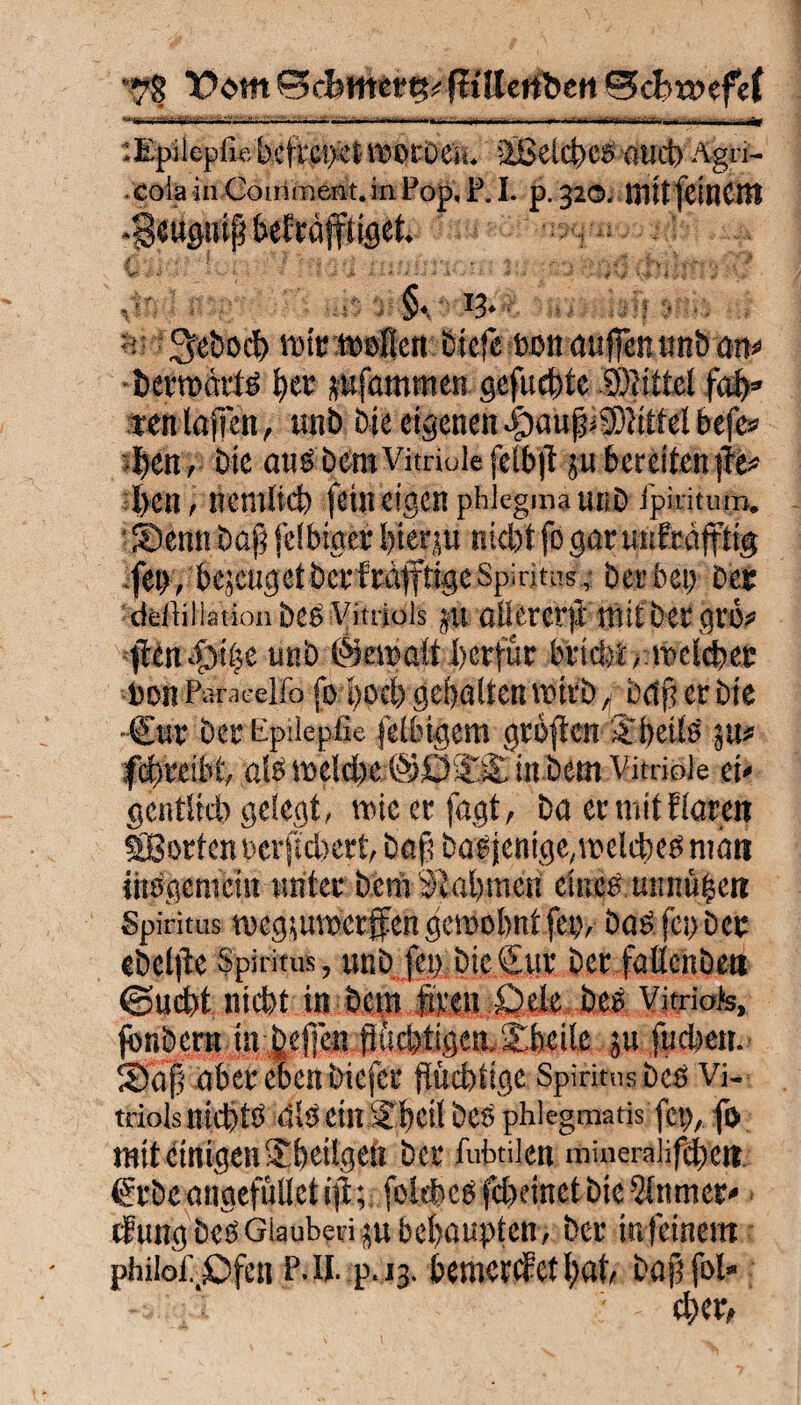 78 Vom Schmertz-stillenden Schwefel
Epilepsie befreyet worden. Welches auch Agri-
cola in Comment. in Pop. P. I. p. 320. mit seinem
Zeugniß bekräfftiget.
§. 13.
Jedoch wir wollen diese von aussen und an-
derwärts her zusammen gesuchte Mittel fah-
ren lassen, und die eigenen Hauß-Mittel bese-
hen, die aus dem Vitriole selbst zu bereiten ste-
hen, nemlich sein eigen phlegma und spiritum.
Denn daß selbiger hierzu nicht so gar unkräfftig
sey, bezeuget der kräfftige Spiritus, der bey der
destillation des Vitriols zu allererst mit der grö-
sten Hitze und Gewalt herfür bricht, welcher
von Paracelso so hoch gehalten wird, daß er die
Cur der Epilepsie selbigem grösten Theils zu-
schreibt, als welche GOTT in dem Vitriole ei-
gentlich gelegt, wie er sagt, da er mit klaren
Worten versichert, daß dasjenige, welches man
insgemein unter dem Nahmen eines unnützen
Spiritus wegzuwerffen gewohnt sey, das sey der
edelste Spiritus, und sey die Cur der fallenden
Sucht nicht in dem fixen Oele des Vitriols,
sondern in dessen flüchtigen Theile zu suchen.
Daß aber eben dieser flüchtige Spiritus des Vi-
triols nichts als ein Theil des phlegmatis sey, so
mit einigen Theilgen der subtilen mineralischen
Erde angefüllet ist; solches scheinet die Anmer-
ckung des Glauberi zu behaupten, der in seinem
philos. Ofen P. II. p. 13. bemercket hat, daß sol-
cher,